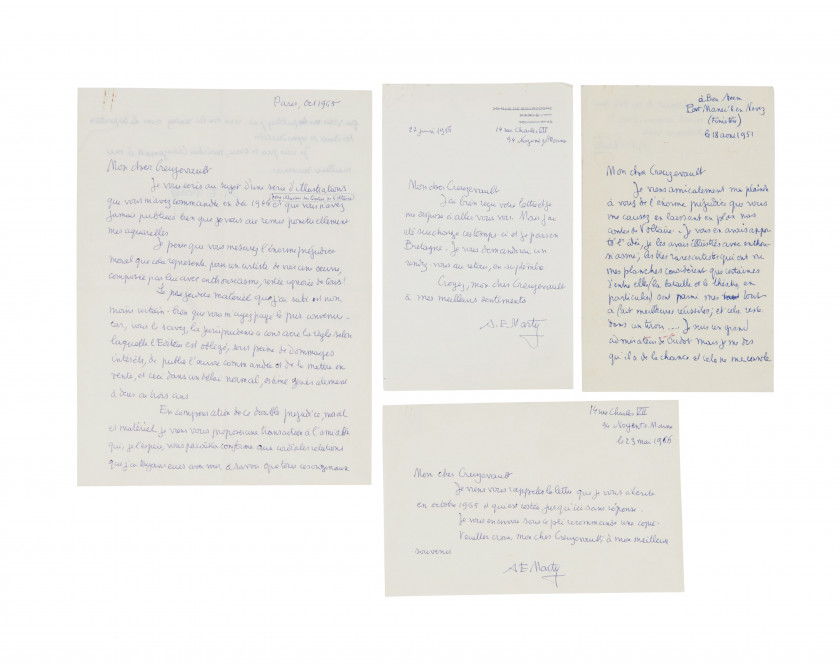 Paris, oct 1965
Mon cher Creuzevault
Je vous écris au sujet d'une série d'illustrations
que vous m'avez commandées en 1946 et que vous n'avez
jamais publiées bien que je vous aie remis ponctuellement
mes aquarelles.
Je pense que vous mesurez l'énorme préjudice
moral que cela représente pour un artiste de voir son œuvre,
composée par lui avec enthousiasme, rester ignorée de tous!
Le préjudice matériel que j'ai subi est non
moins certain - bien que vous m'ayez payé le prix convenu -
car, vous le savez, la jurisprudence a consacré la règle selon
laquelle l'Editeur est obligé, sous peine de dommages
intérêts, de publier l'œuvre commandée et de la mettre en
vente, et ceci dans un délai normal, même généralement
à deux ou trois ans
En compensation de ce double préjudice, moral
et matériel, je viens vous proposer une transaction à l'amiable
qui, je l'espère, vous paraîtra conforme aux cordiales relations
que j'ai toujours eues avec vous, à savoir que
22 juin 1966
17 rue Charles VII
94 Nogent s/Marne
Mon cher Creuzevault
J'ai bien reçu votre lettre et je
me dispose à aller vous voir. Mais j'ai
été surchargé ces temps-ci et je pars en
Bretagne - Je vous demanderai un
rendez-vous au retour, en septembre
Croyez, mon cher Creuzevault
à mes meilleurs sentiments
A.E. Marty
à Ker Moen
Port Manec'h en Nevez
(Finistère)
le 18 août 1951
Mon cher Creuzevault
Je viens amicalement me plaindre
à vous de l'énorme préjudice que vous
me causez en laissant en plan nos
contes de Voltaire - Je vous en avais appor-
té l'idée, je les avais illustrés avec enthou-
siasme, les très rares artistes qui ont vu
mes planches considèrent que certaines
d'entre elles (la bataille et le théâtre, en
particulier) sont parmi mes tout
à fait meilleures réussites; et cela reste
dans un tiroir .... Je suis un grand
admirateur de Oudot mais je me dis
qu'il a de la chance et cela ne me console
17 rue Charles VII
94 Nogent s Marne
le 23 mai 1966
Mon cher Creuzevault
Je viens vous rappeler la lettre que je vous ai écrite
en octobre 1965 et qui est restée jusqu'ici sans réponse.
Je vous en envoie sous ce pli recommandé une copie.
Veuillez croire, mon cher Creuzevault à mon meilleur
souvenir
A.E. Marty